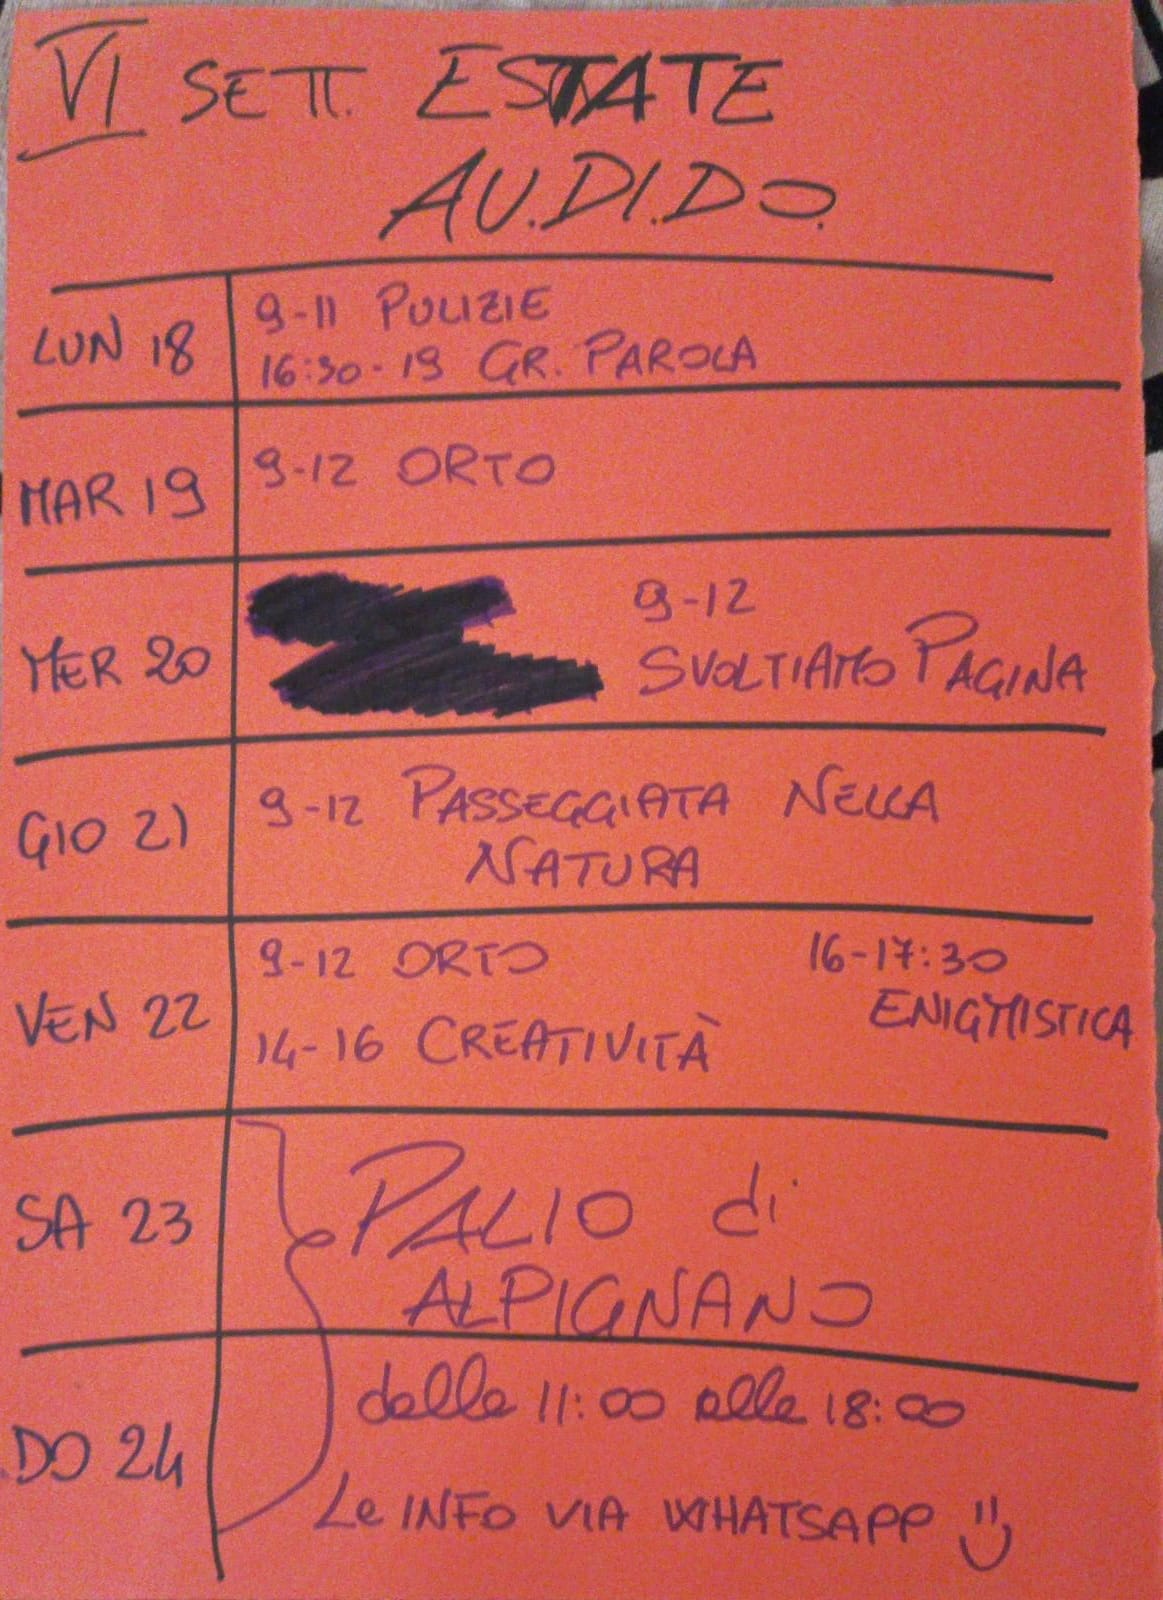 VI SETT. ESTATE
AU.DI.DO.
LUN 18
9-11 PULIZIE
16:30-19 GR. PAROLA
MAR 19
9-12 ORTO
MER 20
9-12
SVOLTIAMO PAGINA
GIO 21
9-12 PASSEGGIATA NELLA
NATURA
VEN 22
9-12 ORTO
14-16 CREATIVITÀ
16-17:30
ENIGMISTICA
SA 23
PALIO di
ALPIGNANO
DO 24
dalle 11:00 alle 18:00
Le INFO VIA WHATSAPP